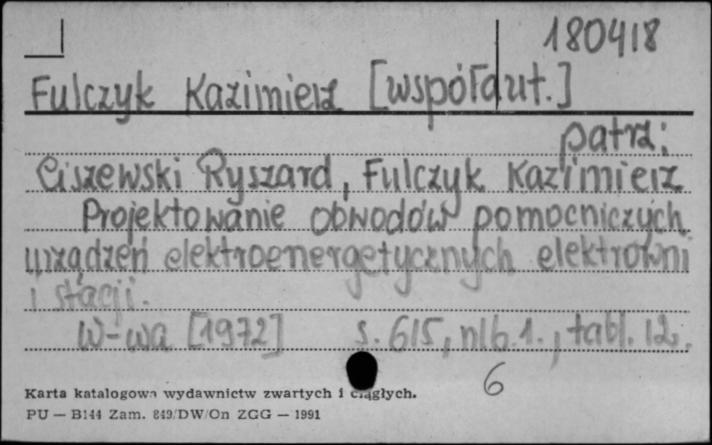 180418
Fulczyk Kazimierz [współaut.]
patrz:
Ciszewski Ryszard, Fulczyk Kazimierz
Projektowanie obwodów pomocniczych
urządzeń elektroenergetycznych elektrowni
i stacji.
W-wa [1972] s. 615, nlb. 1., tabl. 12.
6
Karta katalogowa wydawnictw zwartych i ciągłych.
PU — B144 Zam. 849/DW/On ZGG — 1991